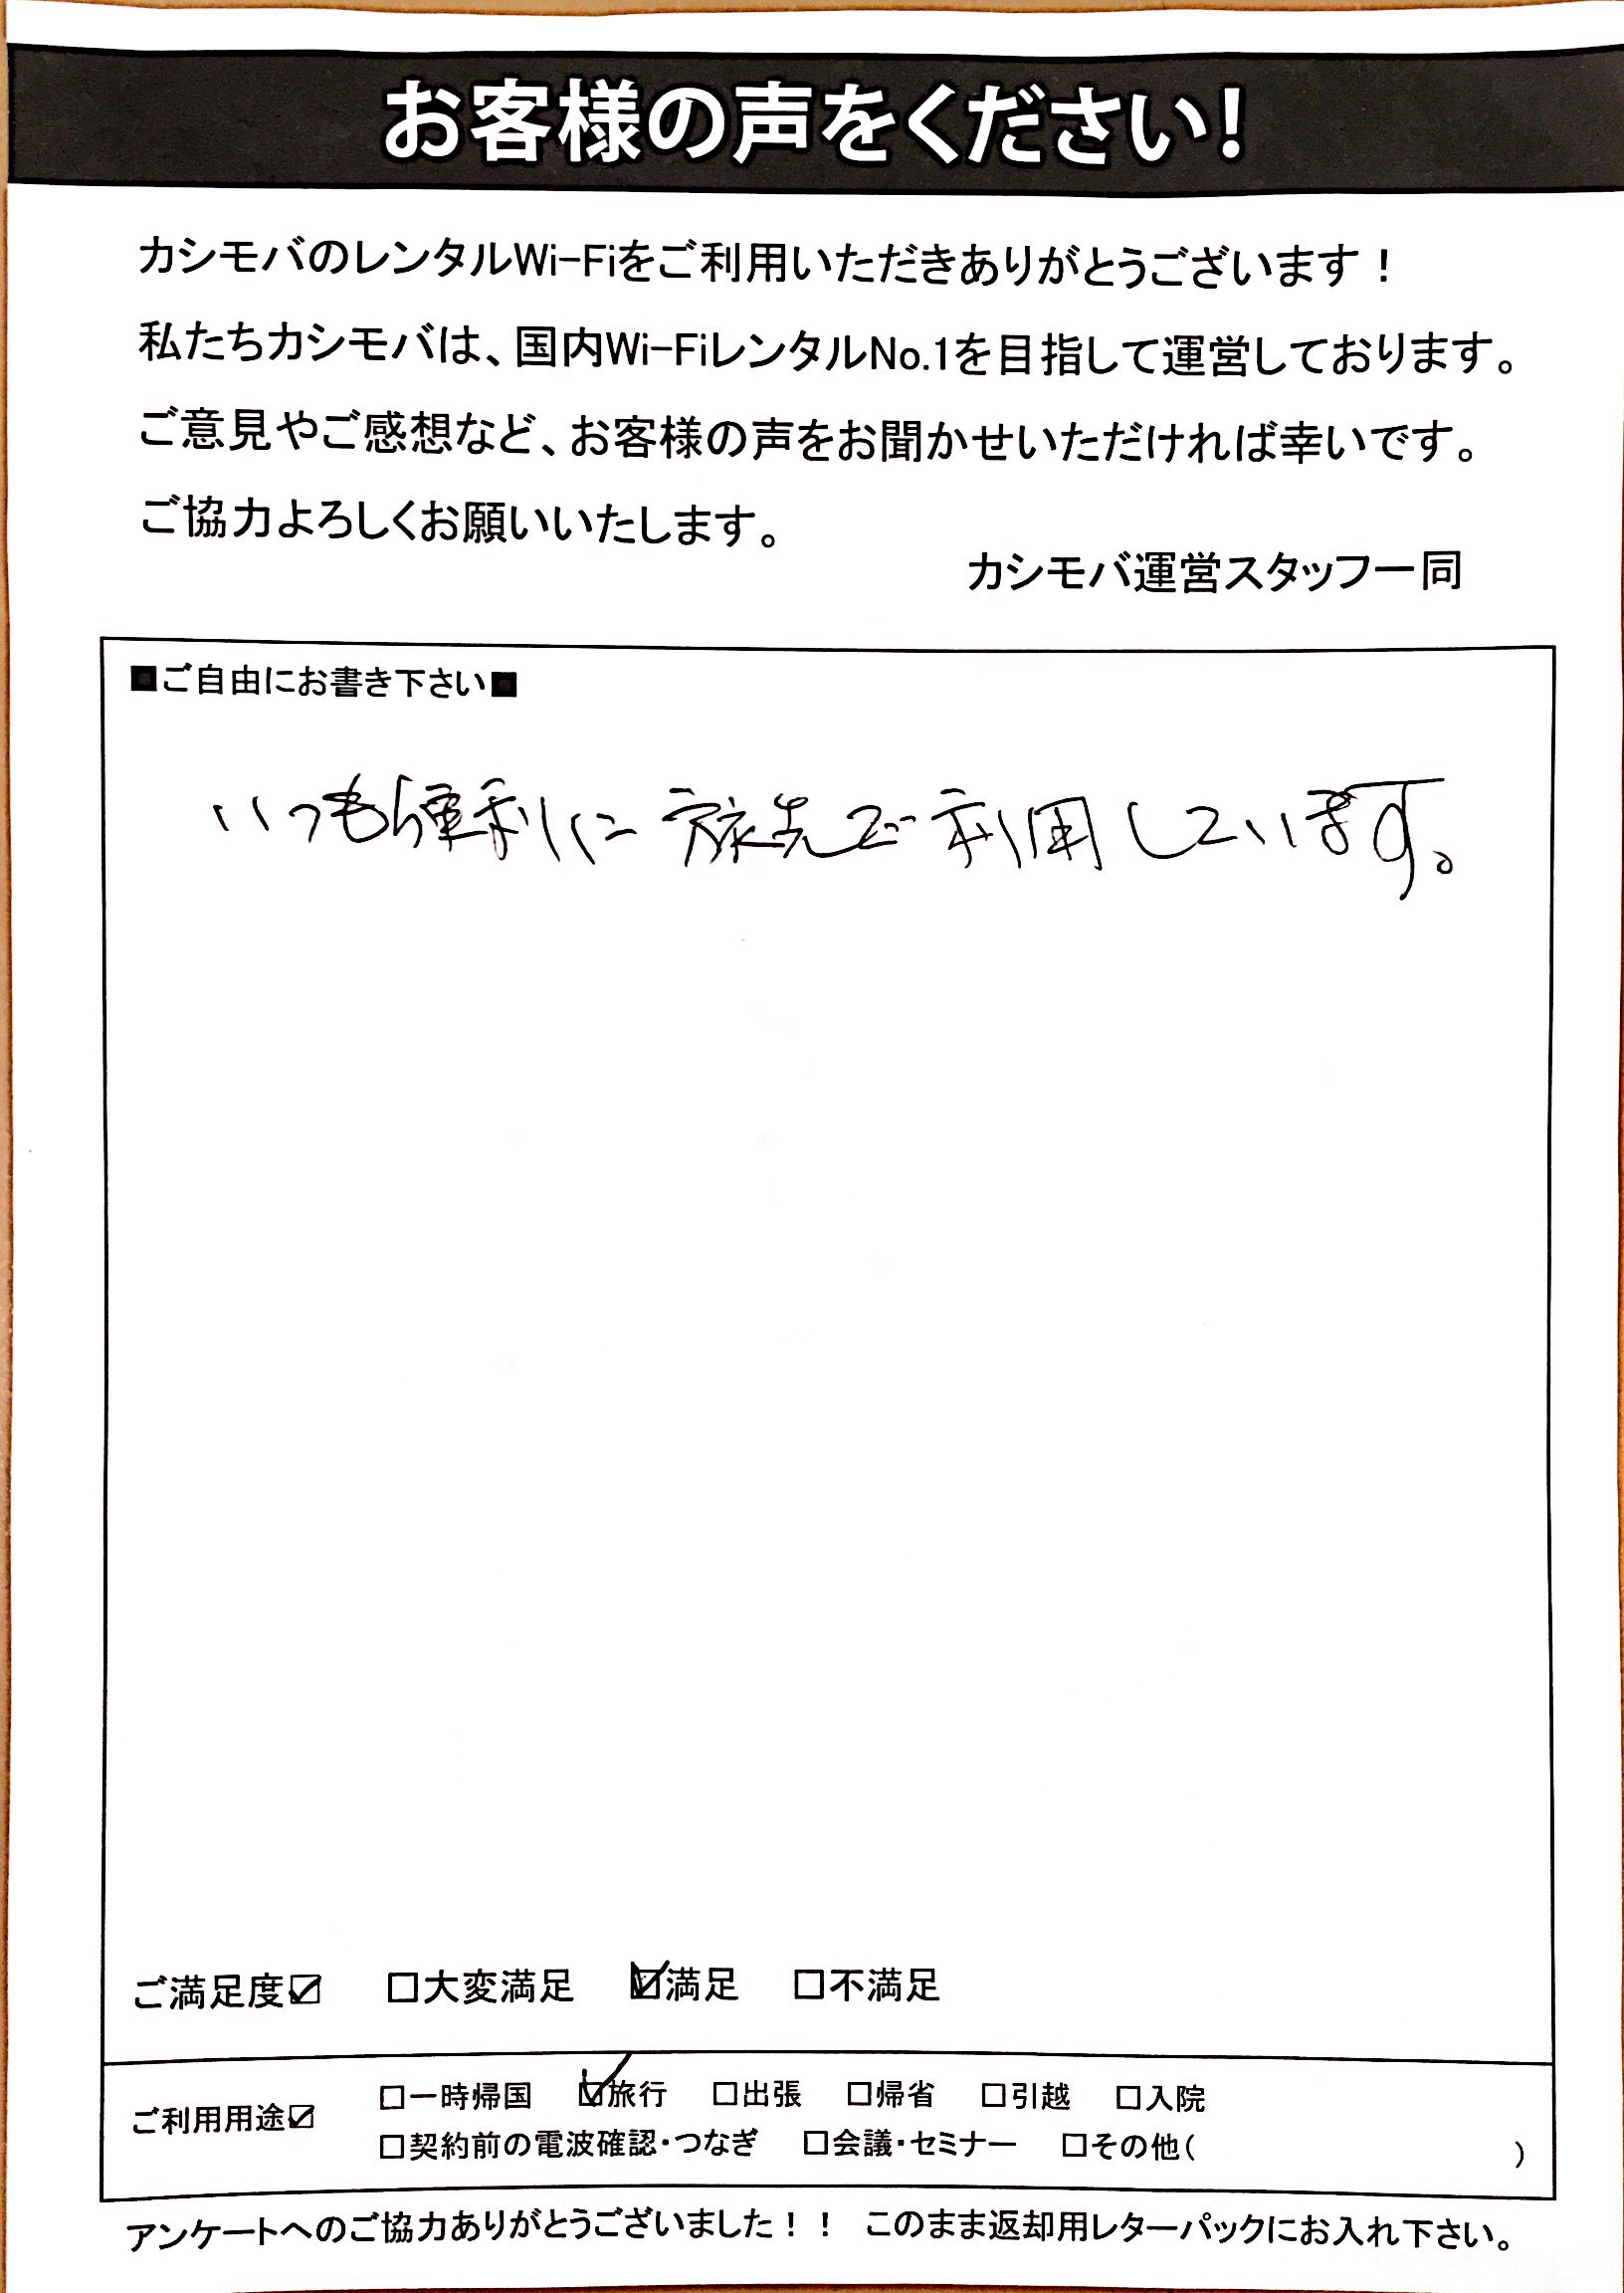 お客様の声をください!
カシモバのレンタルWi-Fiをご利用いただきありがとうございます!
私たちカシモバは、国内Wi-FiレンタルNo.1を目指して運営しております。
ご意見やご感想など、お客様の声をお聞かせいただければ幸いです。
ご協力よろしくお願いいたします。
カシモバ運営スタッフ一同
■ご自由にお書き下さい■
いつも便利に旅先で利用しています。
ご満足度☑ □大変満足 ☑満足 □不満足
ご利用用途☑ □一時帰国 ☑旅行 □出張 □帰省 □引越 □入院
□契約前の電波確認・つなぎ □会議・セミナー □その他( )
アンケートへのご協力ありがとうございました!! このまま返却用レターパックにお入れ下さい。